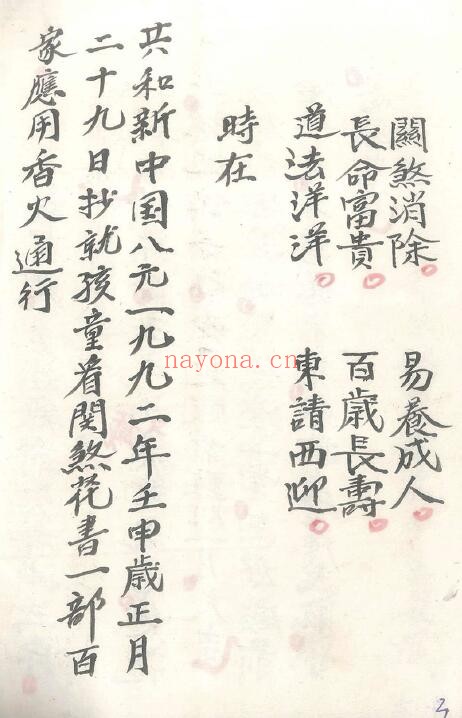 關煞消除 易養成人
長命富貴 百歲長壽
道法洋洋 東請西迎
時在
共和新中国八元一九九二年壬申歲正月
二十九日抄就孩童看関煞花書一部百
家應用香火通行
nayona.cn